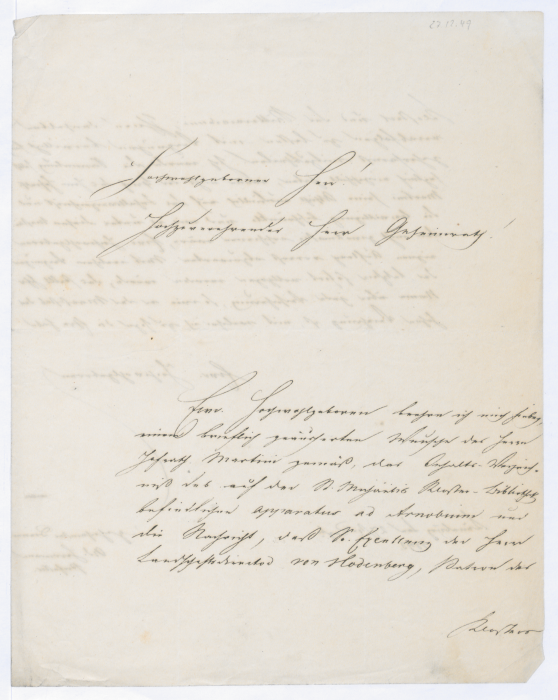 Hochwohlgeborner Herr!
Hochzuverehrender Herr Geheimrath!
Ewr. Hochwohlgeboren beehre ich mich hiebey,
einem brieflich geäußerten Wunsche des Herrn
Hofrath Martini gemäß, das Inhalts-Verzeich-
niß des auf der St. Michaelis Kloster-Bibliothek
befindlichen apparatus ad Arnobium und
die Nachricht, daß Se. Excellenz der Herr
Landschaftsdirector von Hodenberg, Patron des
Klosters